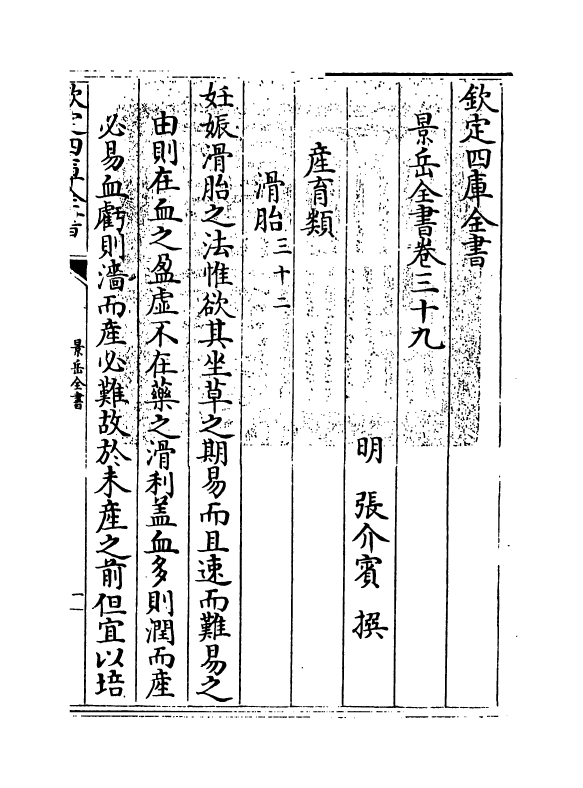 欽定四庫全書
景岳全書卷三十九
明 張介賓 撰
產育類
滑胎三十二
妊娠滑胎之法惟欲其坐草之期易而且速而難易之
由則在血之盈虛不在藥之滑利蓋血多則潤而產
必易血虧則濇而產必難故於未產之前但宜以培
欽定四庫全書
景岳全書